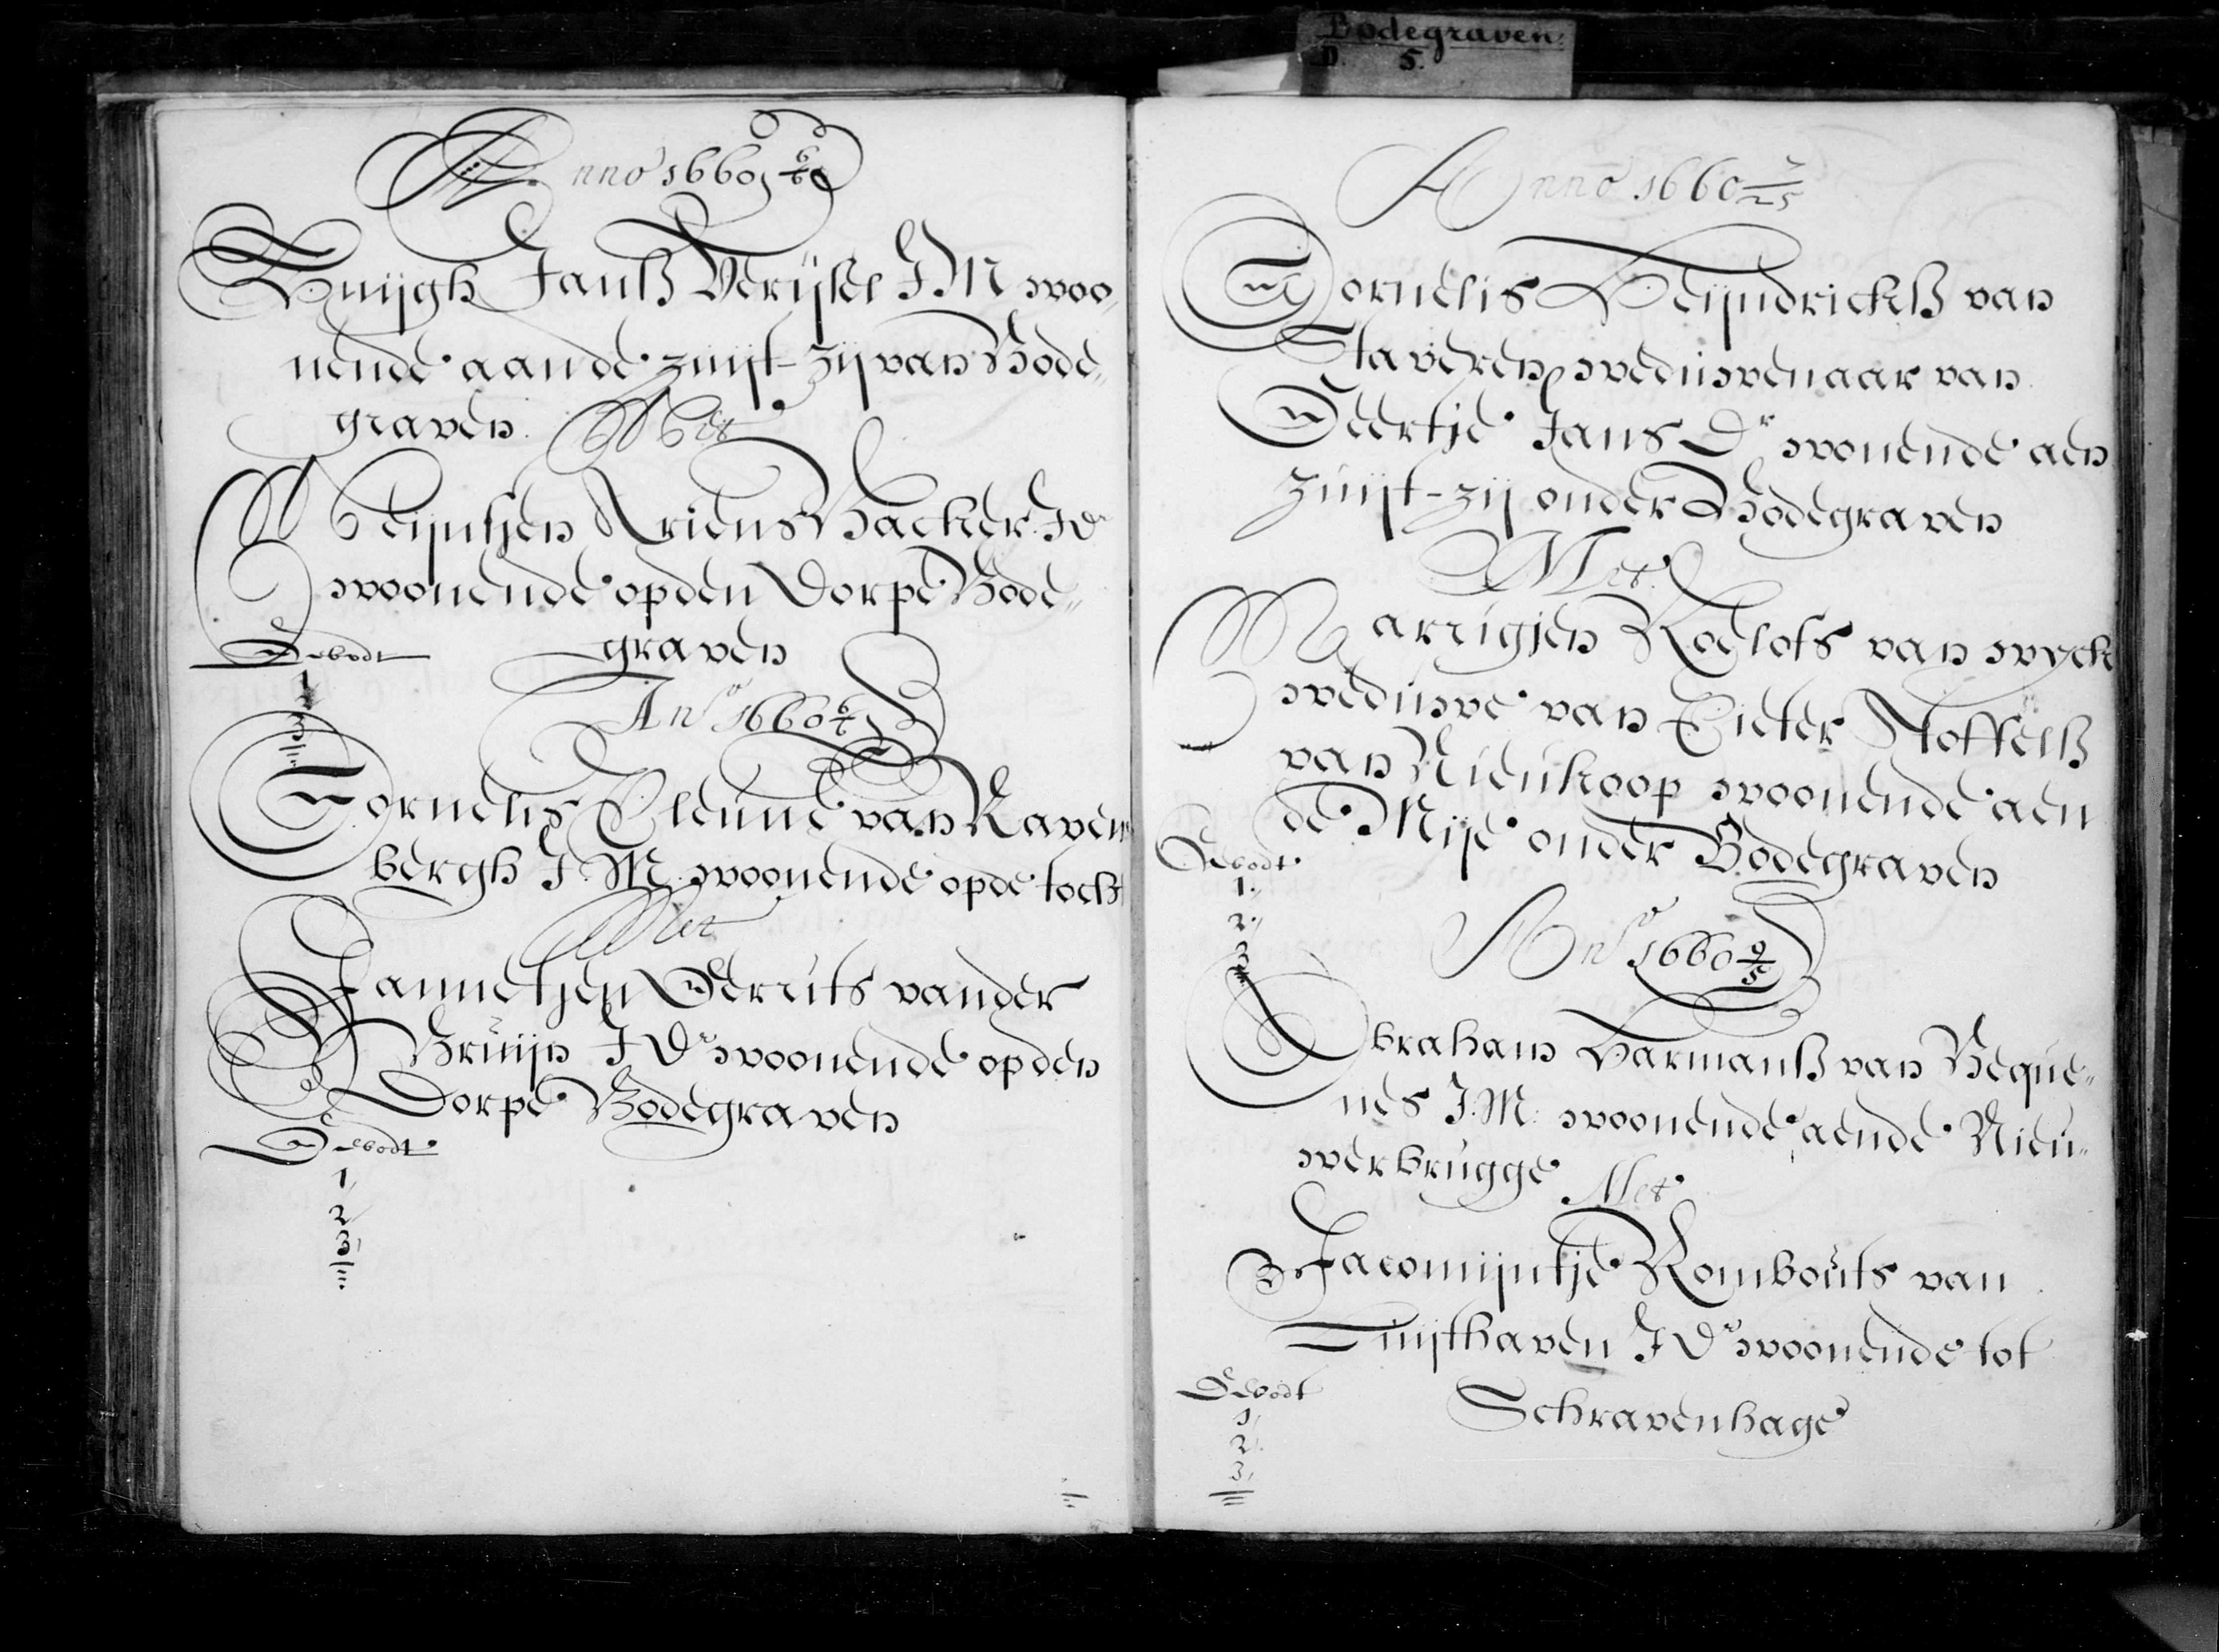 Bodegraven:
D. 5.
Anno 1660 6/6
Huijgh Janß Verijsel J M woo„
nende aande zuijt-zij van Bode„
graven. Met
Weijntjen Ariens Backer. J D
woonende opden Dorpe Bode„
Gebodt graven
1
2
3
Anº 1660 6/6
Cornelis Pleune van Raven
bergh J. M. woonende opde toch
Met
Jannetjen Gerrits vander
Bruijn J Dr woonende opden
Dorpe Bodegraven
Gebodt.
1,
2
3,
Anno 1660 7/25
Cornelis Heijndrickß van
Staveren, weduwenaar van
Geertje Jans Dr wonende aen
zuijt-zij onder Bodegraven
Met.
Marrigjen Roelofs van wyck
weduwe van Pieter Stoffelß
van Nieukoop woonende aen
de Mije onder Bodegraven
Gebodt.
1.
2.
3
Anº 1660 9/5
Abraham Harmanß van Reque„
nes J. M: woonende aende Nieu„
werbrugge Met
Jacomijntje Rombouts van
Tuijthaven J Dr woonende tot
Gebodt Schravenhage
1,
2.
3,